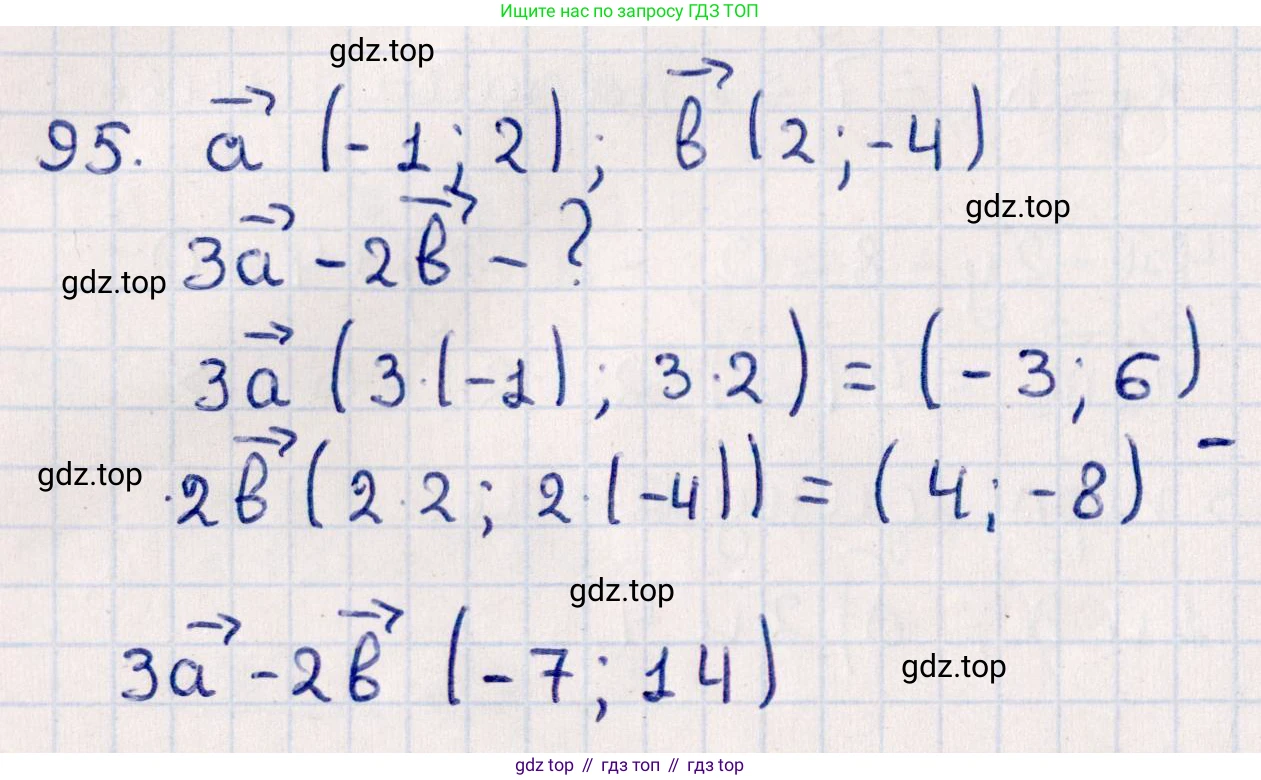 Ищите нас по запросу ГДЗ ТОП
gdz.top
95. a⃗ (-1; 2); b⃗ (2; -4)
gdz.top
3a⃗ - 2b⃗ - ?
gdz.top
3a⃗ (3·(-1); 3·2) = (-3; 6)
-
gdz.top
2b⃗ (2·2; 2·(-4)) = (4; -8)
gdz.top
3a⃗ - 2b⃗ (-7; 14)
gdz.top
gdz top // гдз топ // gdz top